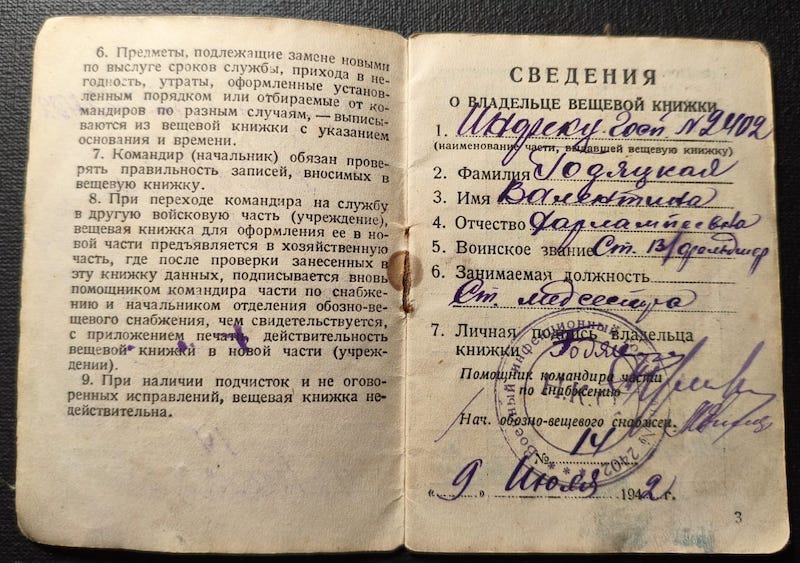 6. Предметы, подлежащие замене новыми
по выслуге сроков службы, прихода в не-
годность, утраты, оформленные установ-
ленным порядком или отбираемые от ко-
мандиров по разным случаям, — выписы-
ваются из вещевой книжки с указанием
основания и времени.
7. Командир (начальник) обязан прове-
рять правильность записей, вносимых в
вещевую книжку.
8. При переходе командира на службу
в другую войсковую часть (учреждение),
вещевая книжка для оформления ее в но-
вой части предъявляется в хозяйственную
часть, где после проверки занесенных в
эту книжку данных, подписывается вновь
помощником командира части по снабже-
нию и начальником отделения обозно-ве-
щевого снабжения, чем свидетельствуется,
с приложением печати, действительность
вещевой книжки в новой части (учреж-
дении).
9. При наличии подчисток и не огово-
ренных исправлений, вещевая книжка не-
действительна.
СВЕДЕНИЯ
О ВЛАДЕЛЬЦЕ ВЕЩЕВОЙ КНИЖКИ
1. Госп № 2402
(наименование части, выдавшей вещевую книжку)
2. Фамилия Годяцкая
3. Имя Валентина
4. Отчество Харлампиевна
5. Воинское звание Ст. в/фельдшер
6. Занимаемая должность
Ст. медсестра
7. Личная подпись владельца
книжки Годяц
Помощник командира части
по снабжению
Нач. обозно-вещевого снабжен.
№ 14
„ 9 “ Июля 1942 г.
Военный инфекционный № 2402
3